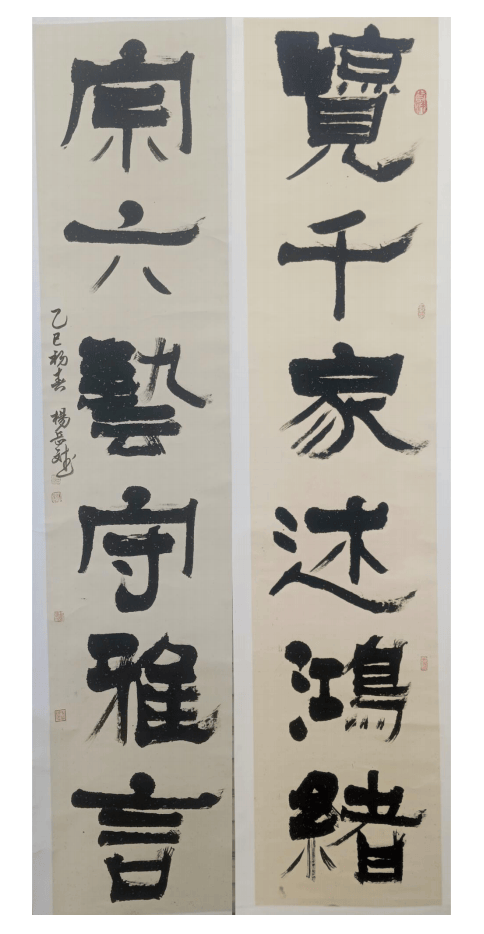 覽千家述鴻緒
宗六藝守雅言
乙巳初春 楊岳斌